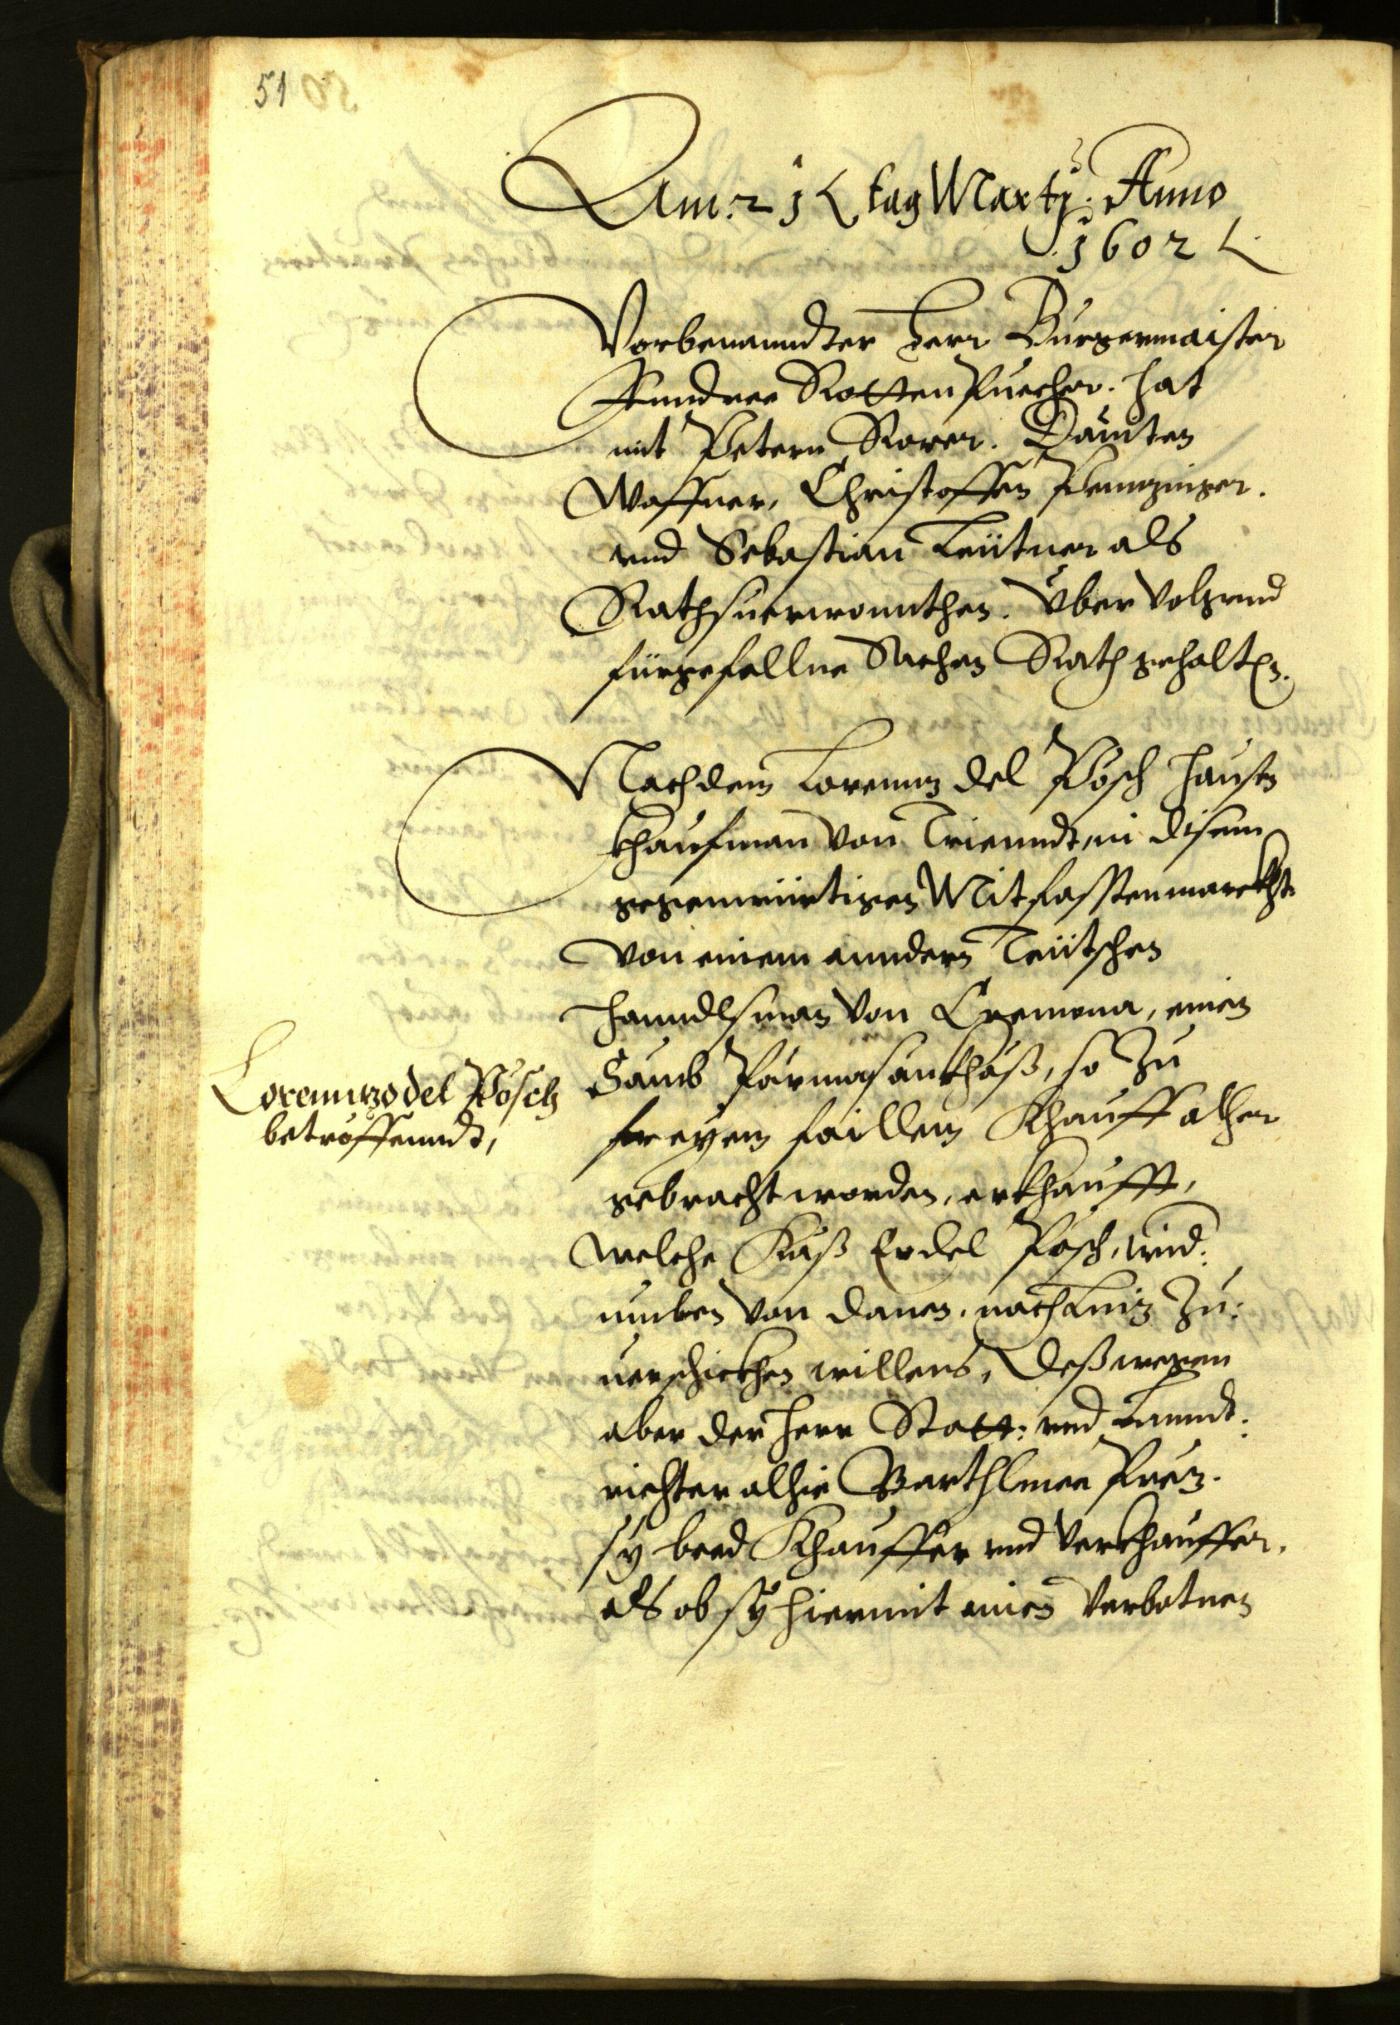 51
Am: 21 tag Martÿ: Anno
1602
Vorbenanndter Herr Burgermaister
Anndree Rottenpuecher. hat
mit Petern Rorer.
Waffner, Christoffen Pennginger.
vnd Sebastian Leitner als
Rathsuerwonnthen. Vber volgend
fürgefallne Sachen Rath gehalten.
Nachdem Lorennz del Posch
khaufman von Triennt, in disem
gegenwürtigen Mitfasstenmarckht
von einem anndern Teütschen
hanndlsman von Cremona, einen
Saumb Parmasankhäß, so zu
freyem faillem Khauff alher
gebracht worden, erkhaufft,
welche Käß Er del Posch, wid:
umben von danen, nach Linz zu:
uerschickhen willens, Deßwegen
aber der Herr Statt: vnd Lanndt:
richter alhie Barthlmee
sy beed Khauffer vnd Verkhauffer,
als ob sÿ hiermit einen Verbotnen
Lorennzo del Posch
betreffenndt,